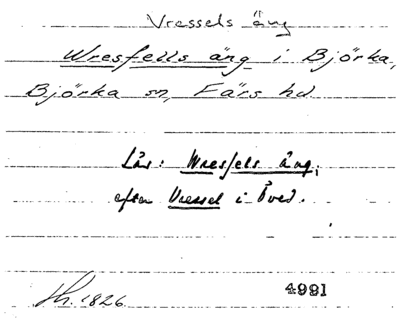 Vressels äng
Wresfells äng i Björka,
Björka sn, Färs hd.
Läs: Wresfels äng,
efter Vressel i Öved.
Lh. 1826. 4991